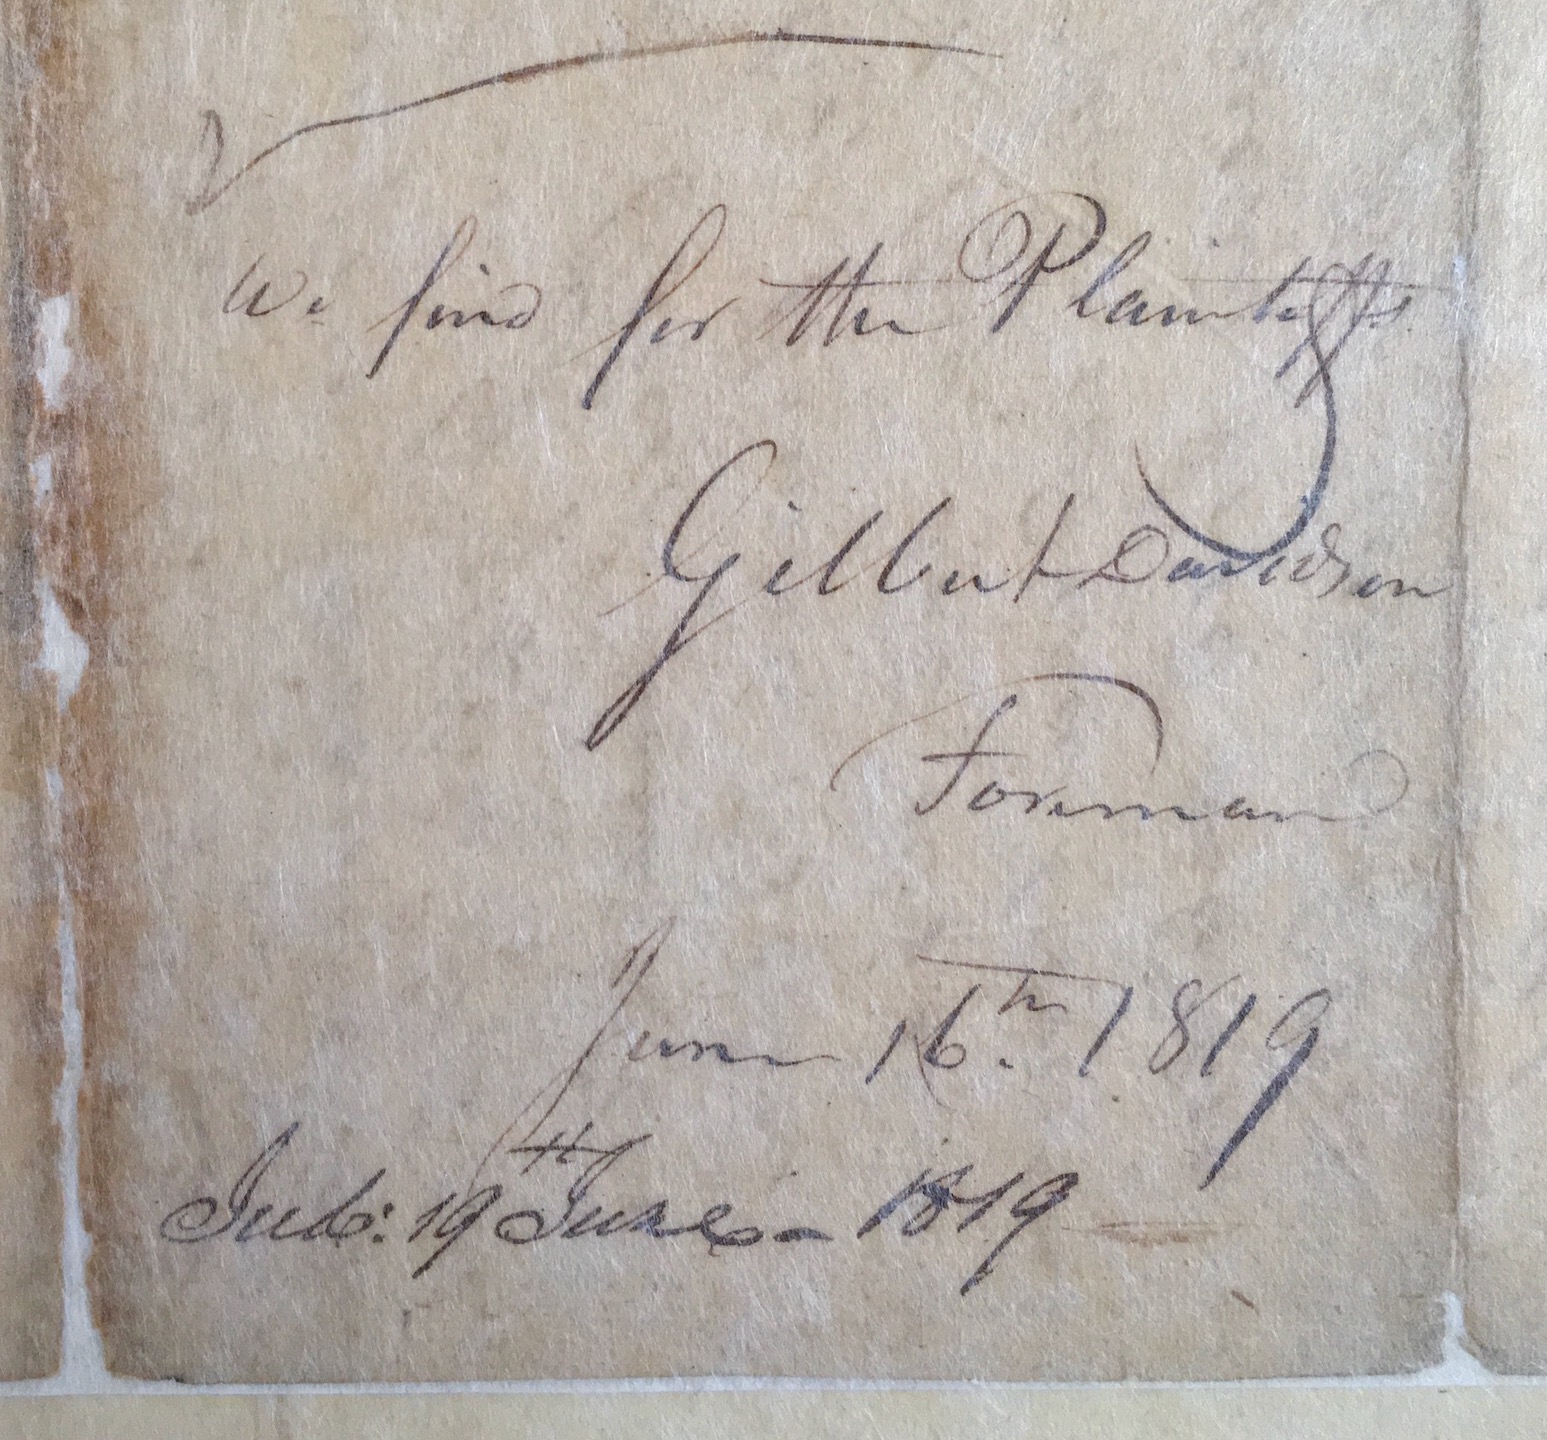 We find for the Plaintiffs
Gilbert Davidson
Foreman
June 16th. 1819
Jud: 19th June - 1819